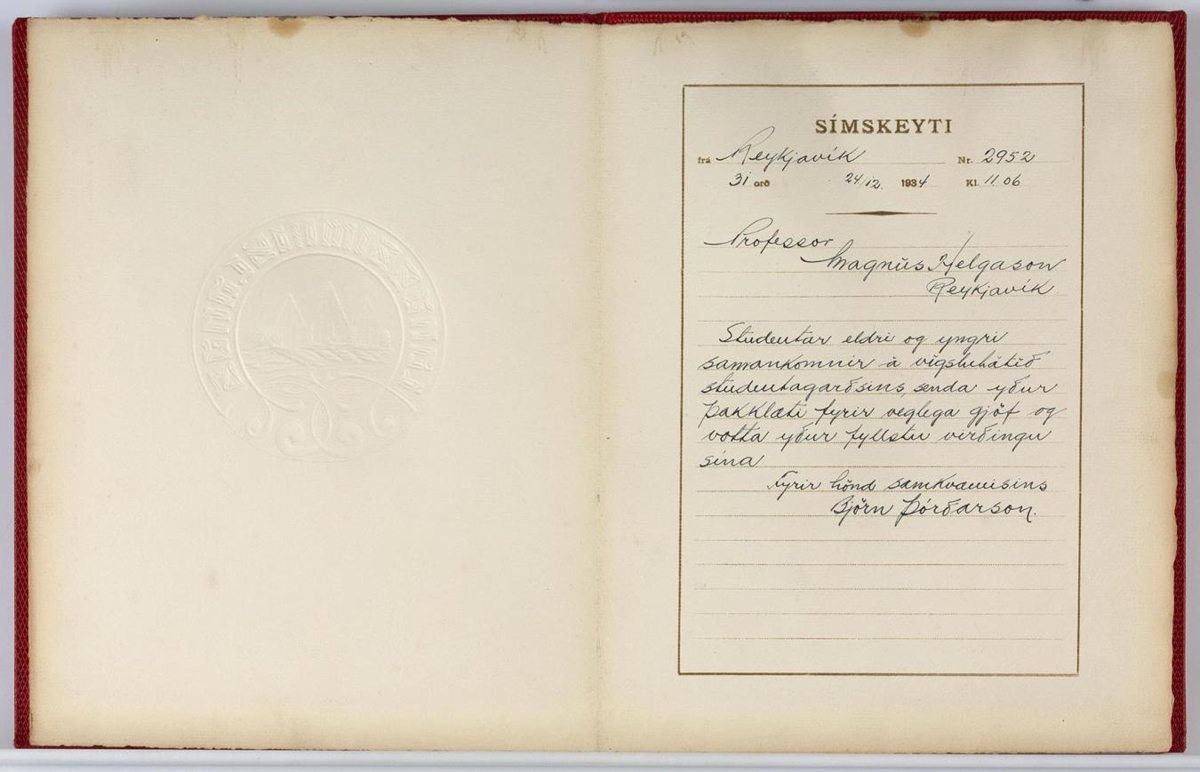 SÍMSKEYTI
frá Reykjavík Nr. 2952
31 orð 24/12. 1934 Kl. 11.06
Professor
Magnús Helgason
Reykjavík.
Studentar eldri og yngri
samankomnir á vígsluhátíð
studentagarðsins, senda yður
þakklæti fyrir veglega gjöf og
votta yður fyllstu virðingu
sína
Fyrir hönd samkvæmisins
Björn Þórðarson.